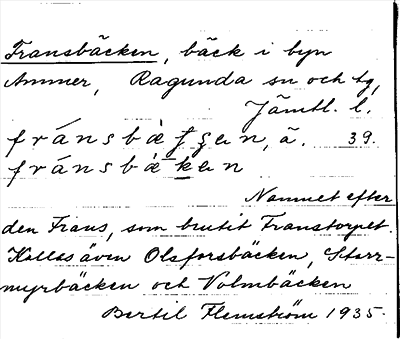 Fransbäcken, bäck i byn
Ammer, Ragunda sn och tg,
Jämtl. l.
fránsbæ̀ʃʒen, ä. 39.
fránsbæ̀ken
Namnet efter
den Frans, som brutit Franstorpet.
Kallas även Olsforsbäcken, Starr-
myrbäcken och Volmbäcken
Bertil Flemström 1935.